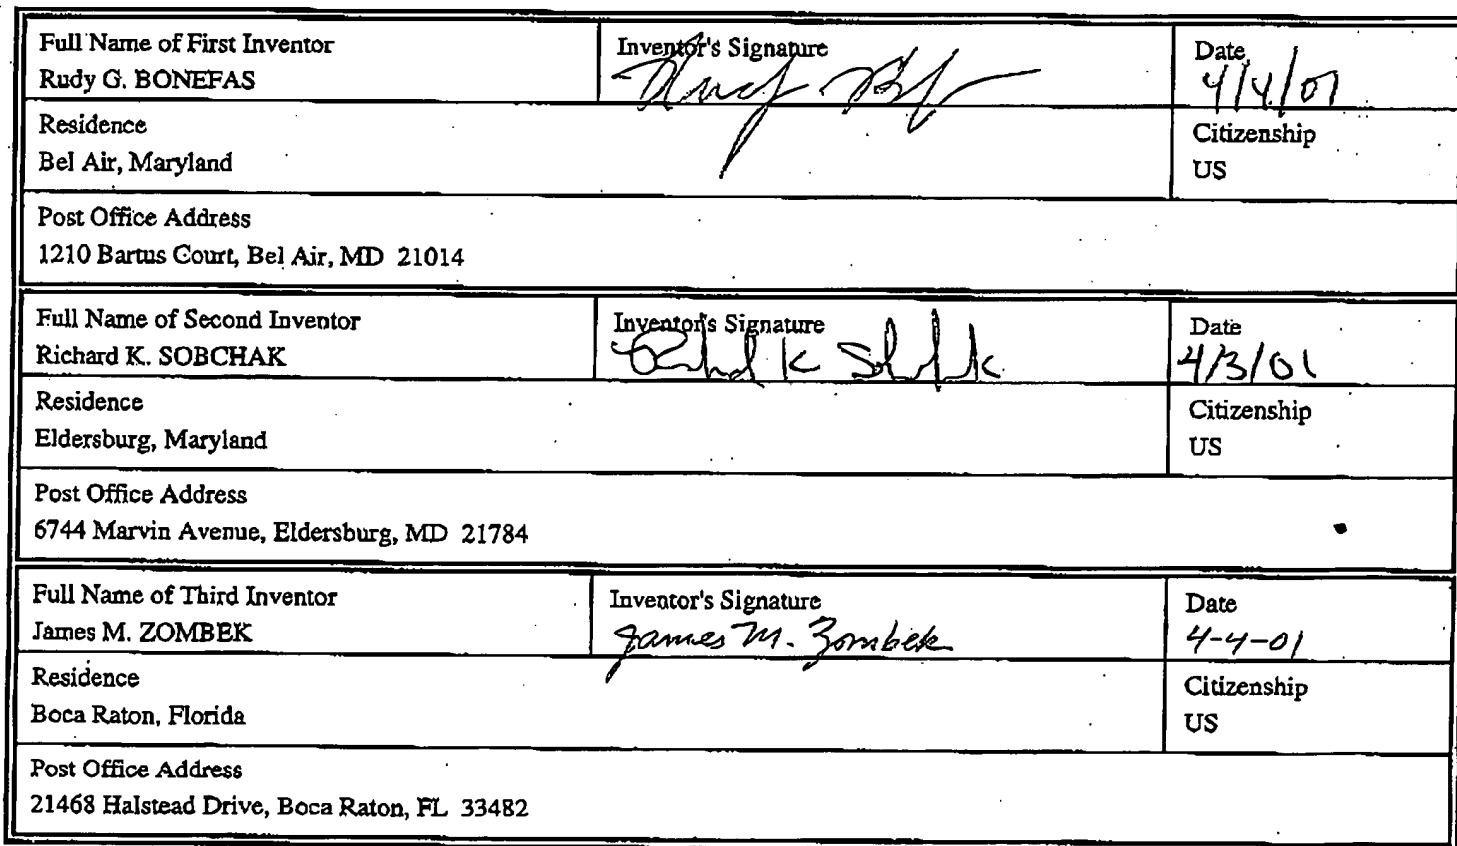 Full Name of First Inventor
Rudy G. BONEFAS
Inventor's Signature
Date
4/4/01
Residence
Bel Air, Maryland
Citizenship
US
Post Office Address
1210 Bartus Court, Bel Air, MD 21014
Full Name of Second Inventor
Richard K. SOBCHAK
Inventor's Signature
Richard K Sobchak
Date
4/3/01
Residence
Eldersburg, Maryland
Citizenship
US
Post Office Address
6744 Marvin Avenue, Eldersburg, MD 21784
Full Name of Third Inventor
James M. ZOMBEK
Inventor's Signature
James M. Zombek
Date
4-4-01
Residence
Boca Raton, Florida
Citizenship
US
Post Office Address
21468 Halstead Drive, Boca Raton, FL 33482